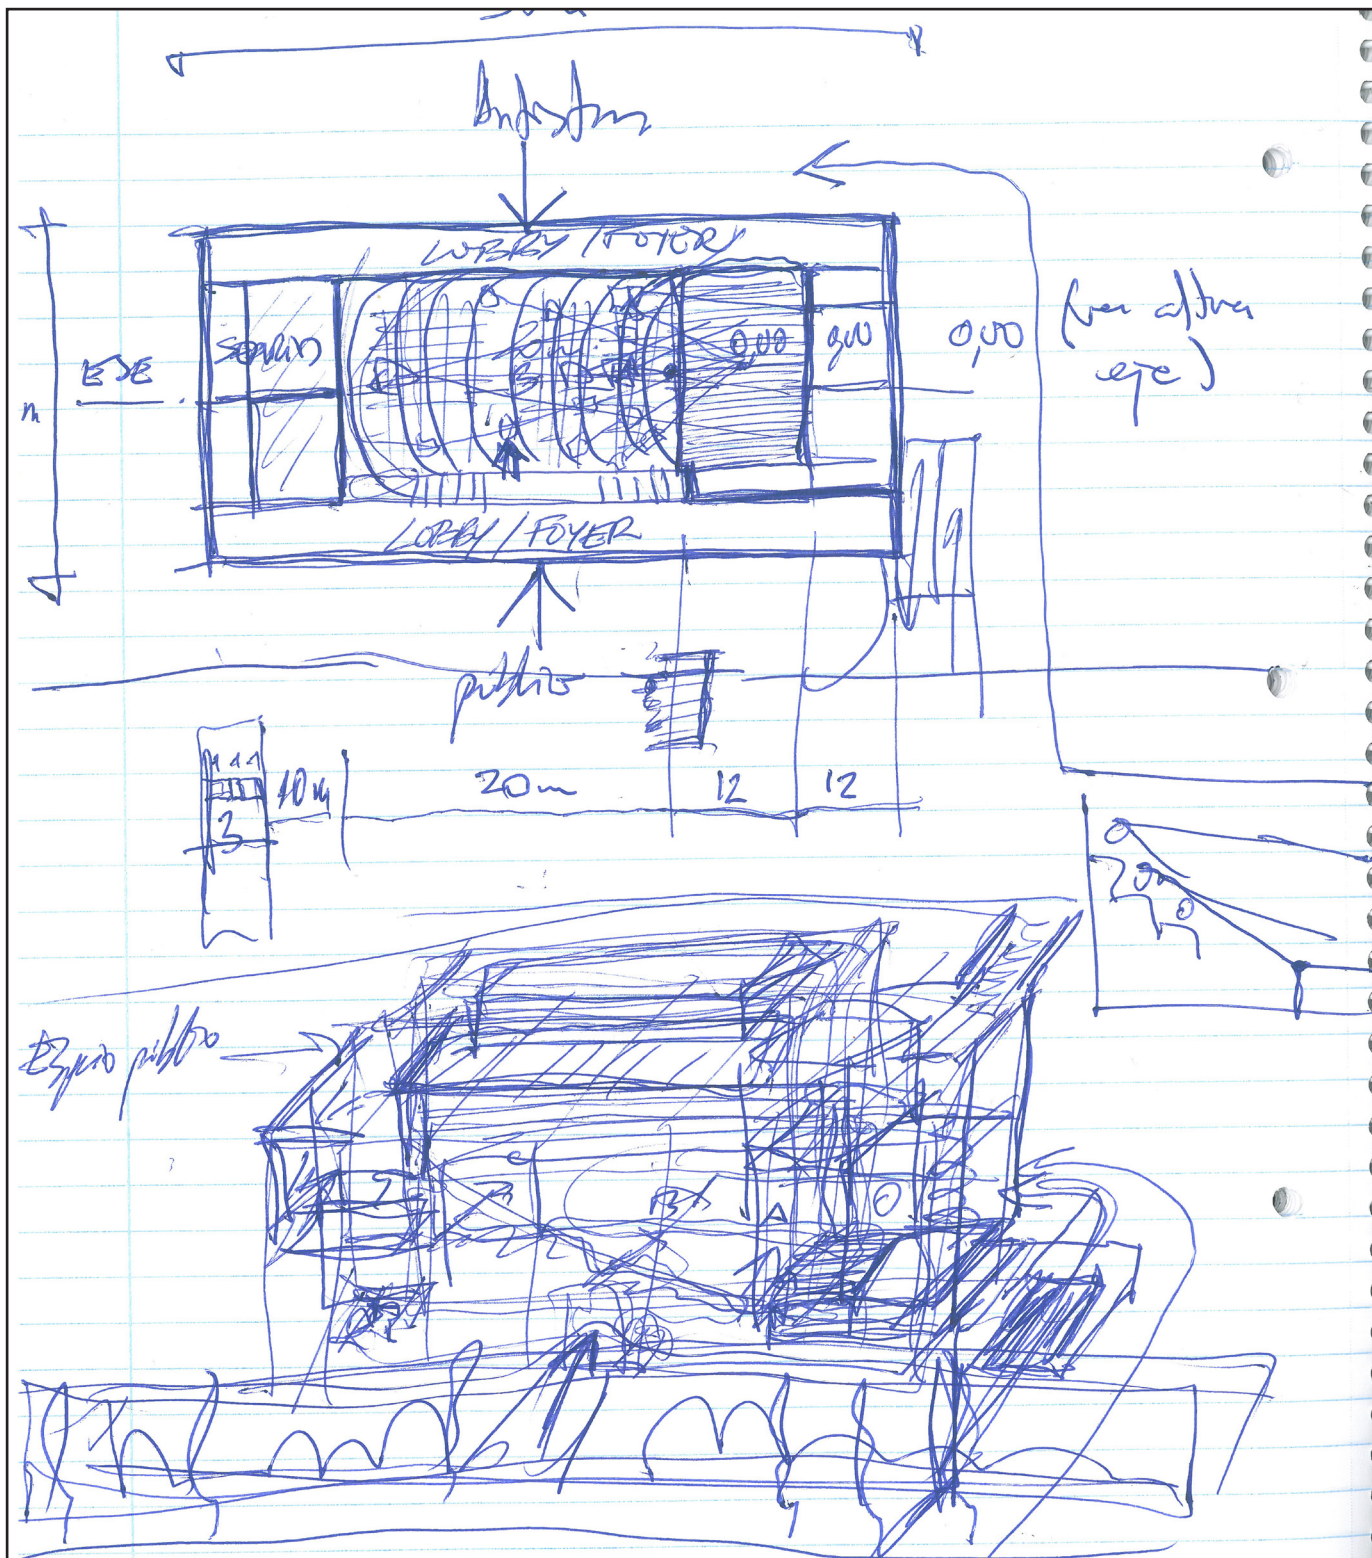 LOBBY / FOYER
0,00
0,00
0,00
EJE
(ver altura
eje)
m
LOBBY / FOYER
público
10m
20m
12
12
3
20m
Espacio público